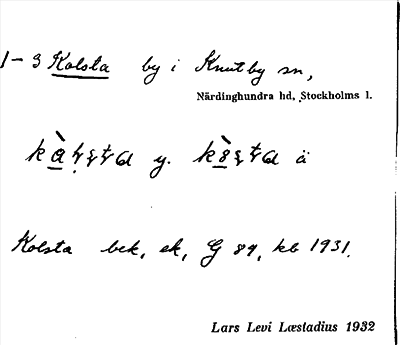 1-3 Kolsta by i Knutby sn,
Närdinghundra hd, Stockholms l.
y. ä
Kolsta bek, ek, G 89, kb 1931.
Lars Levi Læstadius 1932